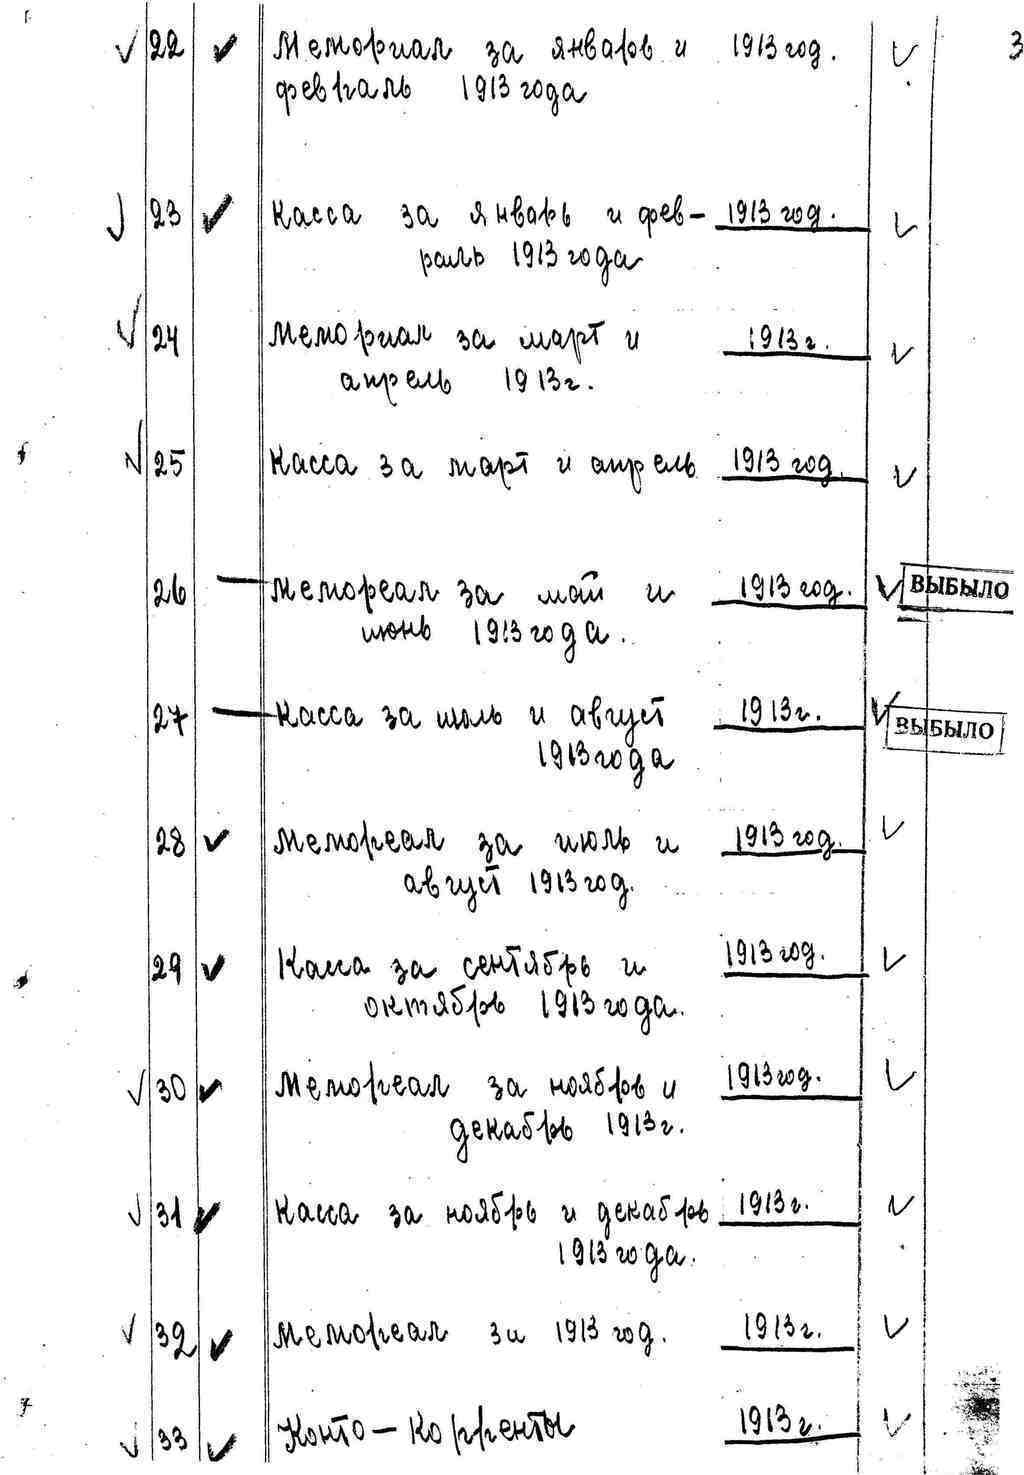 3
22 Мемориал за январь и 1913 год.
февраль 1913 года
23 Касса за январь и фев- 1913 год.
раль 1913 года
24 Мемориал за март и 1913 г.
апрель 1913 г.
25 Касса за март и апрель 1913 год.
26 Мемореал за май и 1913 год. ВЫБЫЛО
июнь 1913 года.
27 Касса за июль и август 1913 г. ВЫБЫЛО
1913 года
28 Мемореал за июль и 1913 год.
август 1913 год.
29 Касса за сентябрь и 1913 год.
октябрь 1913 года.
30 Мемореал за ноябрь и 1913 год.
декабрь 1913 г.
31 Касса за ноябрь и декабрь 1913 г.
1913 года.
32 Мемореал за 1913 год. 1913 г.
33 Конто-Корренты 1913 г.